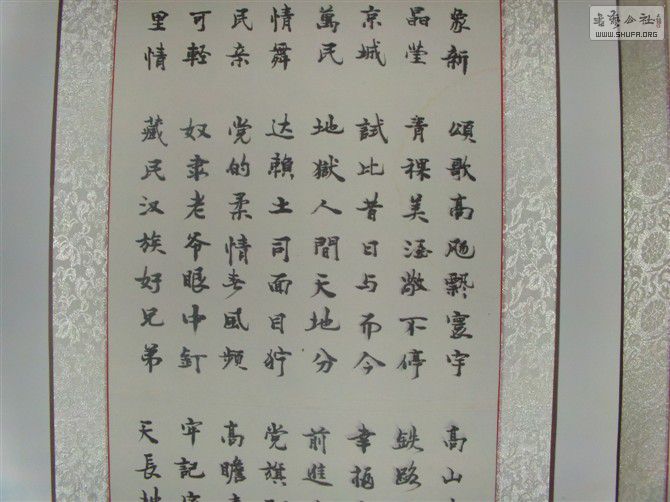 象新 頌歌高飏飘寰宇 高山
晶莹 青稞美酒敞不停 鉄路
京城 試比昔日与而今 幸福
萬民 地獄人間天地分 前進
情舞 达賴土司面目狞 党旗
民亲 党的柔情春風频 高瞻
可軽 奴隶老爷眼中钉 牢记
里情 藏民汉族好兄弟 天長地
書藝公社
WWW.SHUFA.ORG